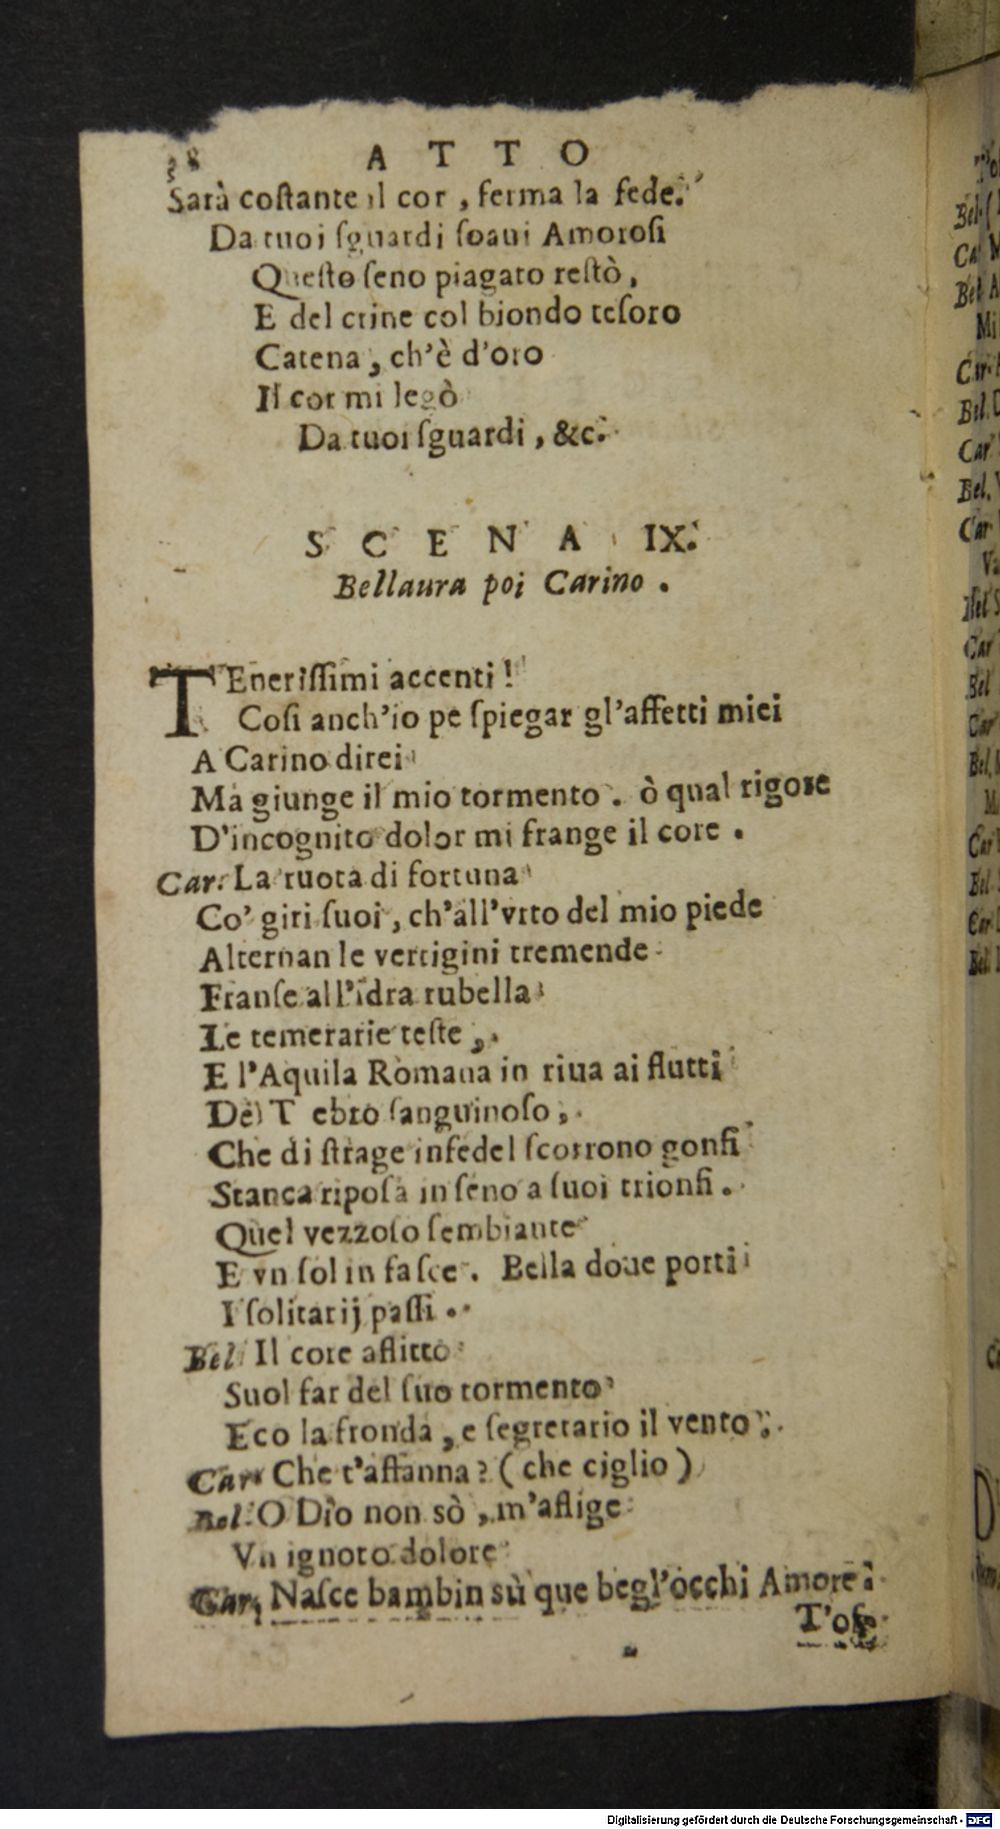 38 ATTO
Sarà coſtante il cor, ferma la fede.
Da tuoi ſguardi ſoaui Amoroſi
Queſto ſeno piagato reſtò,
E del crine col biondo teſoro
Catena, ch'è d'oro
Il cor mi legò
Da tuoi ſguardi, &c.
SCENA IX.
Bellaura poi Carino.
TEneriſſimi accenti!
Coſi anch'io pe ſpiegar gl'affetti miei
A Carino direi
Ma giunge il mio tormento. ò qual rigore
D'incognito dolor mi frange il core.
Car. La ruota di fortuna
Co' giri ſuoi, ch'all'vrto del mio piede
Alternan le vertigini tremende
Franſe all'idra rubella
Le temerarie teſte,
E l'Aquila Romana in riua ai flutti
Del T ebro ſanguinoſo,
Che di ſtrage infedel ſcorrono gonfi
Stanca ripoſa in ſeno a ſuoi trionfi.
Quel vezzoſo ſembiante
E vn ſol in faſce. Bella doue porti
I ſolitarij paſſi.
Bel Il core aflitto
Suol far del ſuo tormento
Eco la fronda, e ſegretario il vento;
Car Che t'affanna? (che ciglio)
Bel. O Dio non sò, m'aflige
Vn ignoto dolore
Car, Naſce bambin sù que begl'occhi Amore:
T'oſ-
Bel.
Ca
Bel
Mi
Car.
Bel.
Car
Bel.
Car
Bel
Car
Bel
Car
Bel.
Car
Bel
Car
Bel
Digitalisierung gefördert durch die Deutsche Forschungsgemeinschaft - DFG